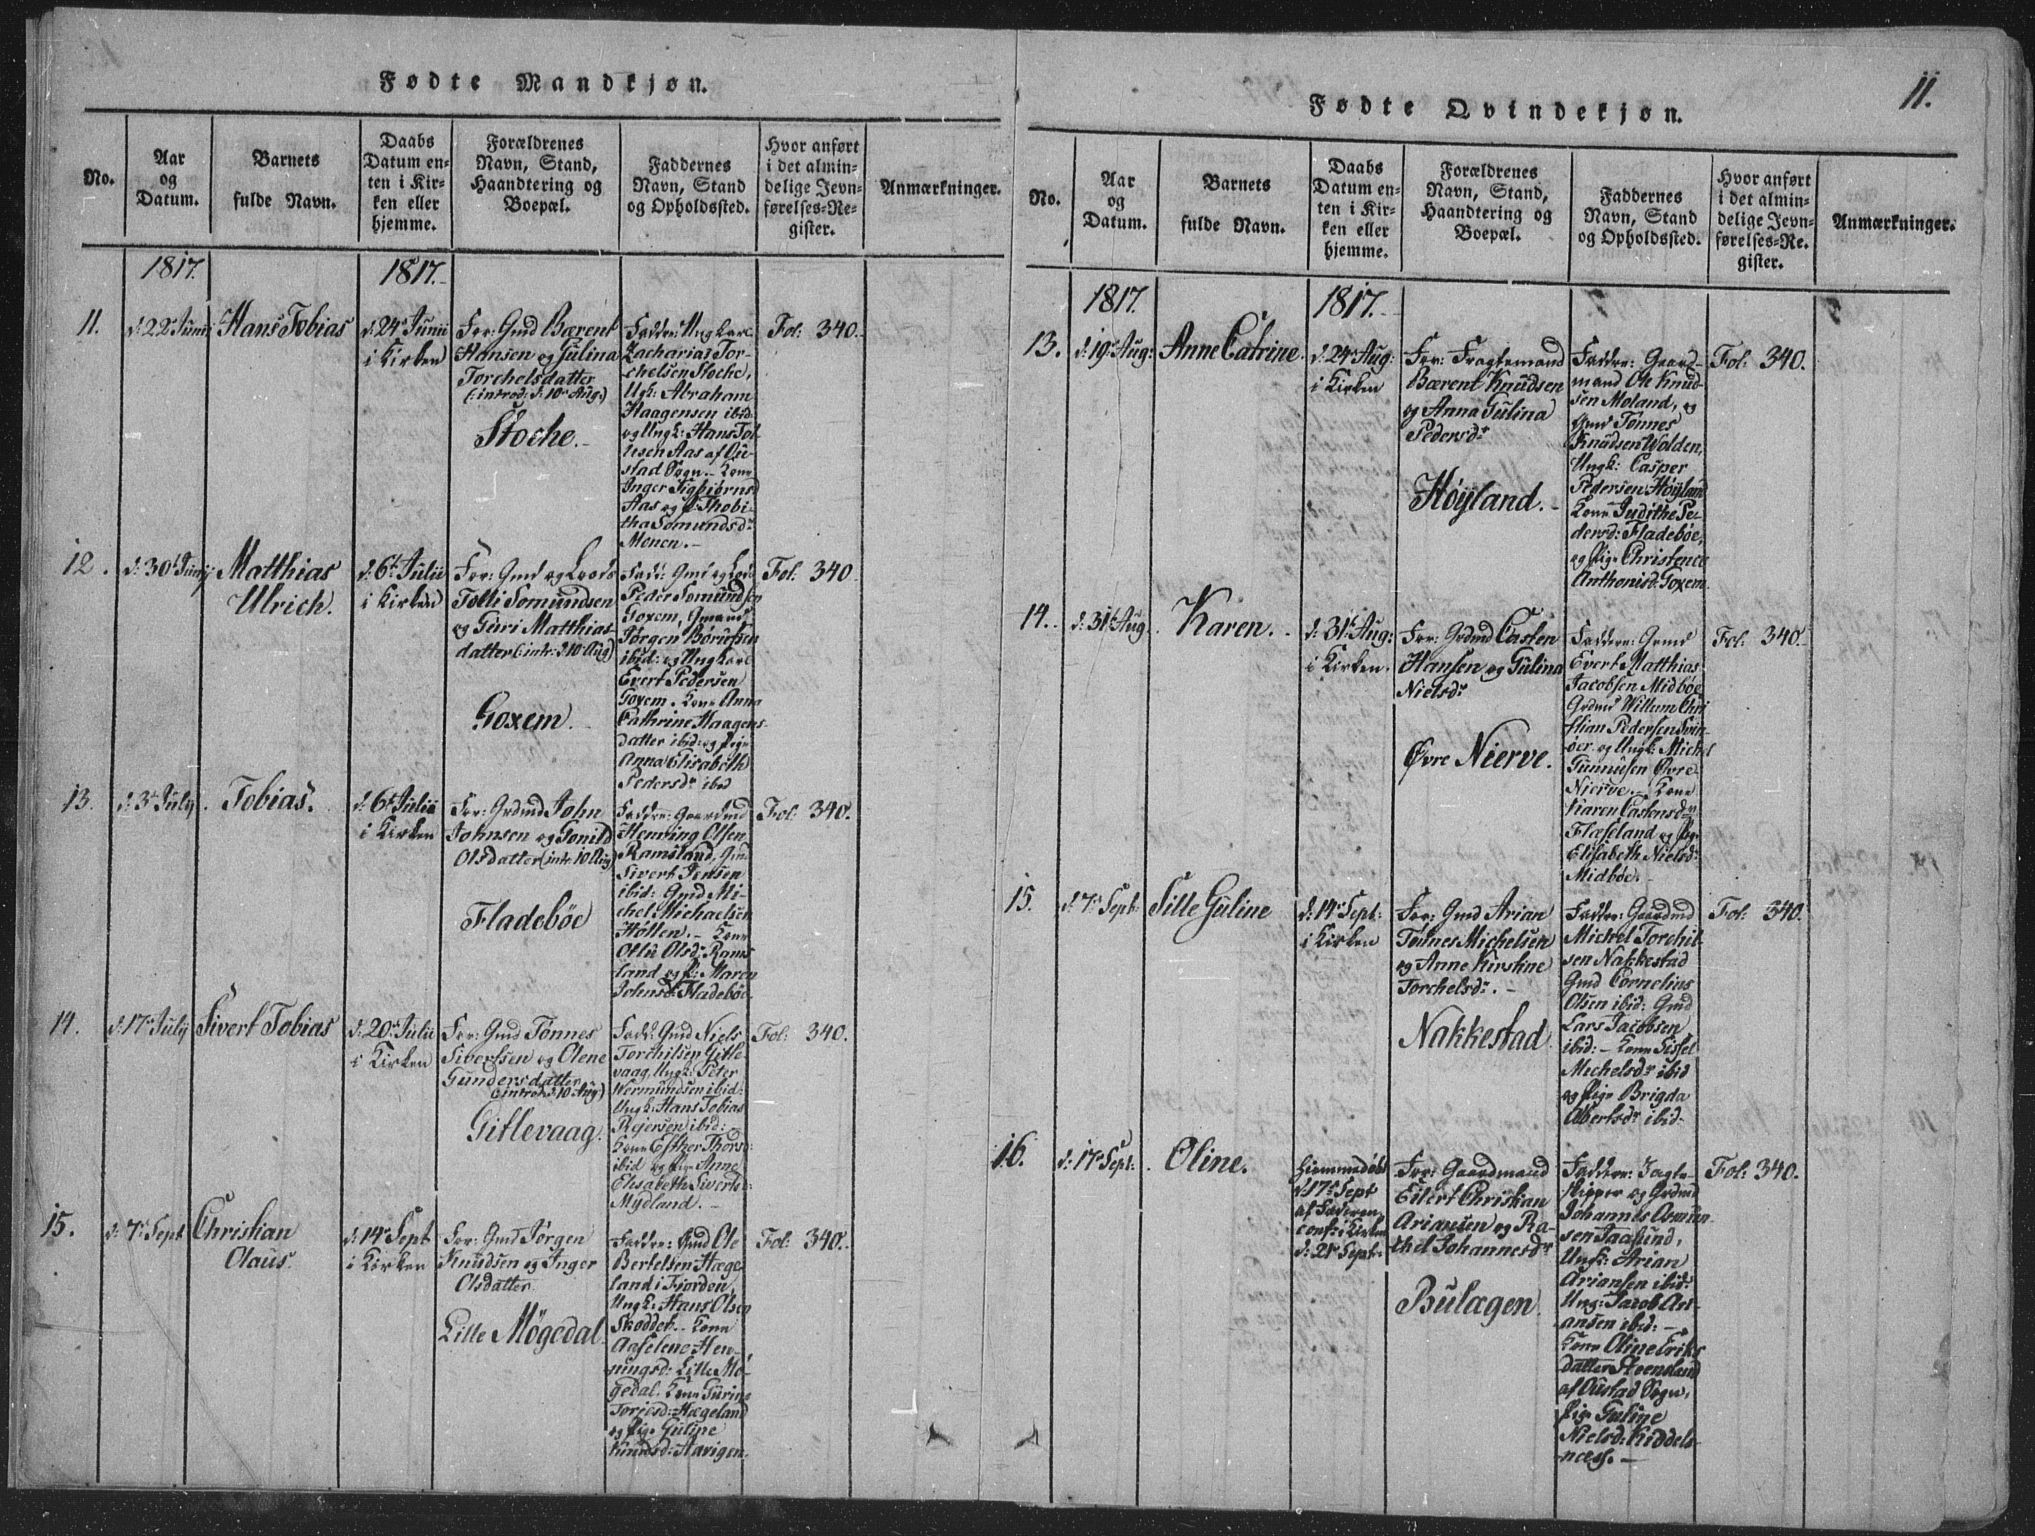 Fødte Mandkjøn.
No.
Aar
og
Datum.
Barnets
fulde Navn.
Daabs
Datum en-
ten i Kir-
ken eller
hjemme.
Forældrenes
Navn, Stand,
Haandtering og
Boepæl.
Faddernes
Navn, Stand
og Opholdssted.
Hvor anført
i det almin-
delige Jevn-
førelses-Re-
gister.
Anmærkninger.
1817.
1817.
11.
d: 22 Junii
Hans Tobias
d: 24 Junii
i Kirken
For: Gmd Bærent
Hansen og Gülina
Torchelsdatter
(: introd: d: 10 Aug:)
Stoche.
Faddre: Ungkarl
Zacharias Tor-
chelsen Stoche,
Ugk: Abraham
Haagensen ibid:
og Ungk: Hans Tol-
lesen Aas af Ou-
stad Sogn. Kone
Inger Sigbiørnsd
Aas og P: Thobi-
tha Somundsdr
Menen.
Fol: 340.
12.
d: 30 Junij
Matthias
Ulrich.
d: 6t Julii
i Kirken
For: Gmd og Loods
Tolli Somündsen
og Güri Matthias-
datter (: intr: d 10 Aug)
Goxem.
Fadd: Gmd og Lods
Peder Somündsen
Goxem, Gmand
Jørgen Børufsen
ibid: og Ungkarl
Evert Pedersen
Goxem. Kone Anna
Cathrine Haagens-
datter ibid: og Pige
Anna Elisabeth
Pedersdr ibid
Fol: 340.
13.
d: 3t July
Tobias.
d: 6t Julii
i Kirken
For: Grdmd John
Johnsen og Gonild
Olsdatter (intr: 10 Aug)
Fladebøe
Faddre: Gaardmd
Henning Olsen
Ramsland, Gmd
Sivert Jensen
ibid: Gmd Mi-
chel Michaelsen
Hollen. Kone
Ollü Olsd: Rams-
land og P: Maren
Johnsd: Fladebøe.
Fol: 340.
14.
d: 17 July
Sivert Tobias
d: 20 Julii
i Kirken
For: Gmd Tønnes
Sivertsen og Olene
Gundersdatter
(: introd: d: 10 Aug)
Gitlevaag.
Fadd: Gmd Niels
Torchilsen Gitle-
vaag, Ungk: Peter
Wermundsen ibid:
Ungk: Hans Tobias
Rejersen ibid:
Kone Esther Thorsd:
ibid og Pige Anne
Elisabeth Sivertsd:
Mydland.
Fol: 340.
15.
d: 7 Sept
Christian
Olaus.
d: 14 Sept
i Kirken
For: Gmd Jørgen
Knüdsen og Inger
Olsdatter
Lille Møgedal.
Faddre: Gmd Ole
Bertelsen Hæge-
land i Fjorden,
Ungk: Hans Olsen
Skoddet. Kone
Aaselene Hen-
ningsd: Lille Mø-
gedal. Kone Gürine
Torjesd: Hægeland
og Pige Güline
Knudsd: Havigen.
Fol: 340.
11.
Fødte Qvindekjøn.
No.
Aar
og
Datum.
Barnets
fulde Navn.
Daabs
Datum en-
ten i Kir-
ken eller
hjemme.
Forældrenes
Navn, Stand,
Haandtering og
Boepæl.
Faddernes
Navn, Stand
og Opholdssted.
Hvor anført
i det almin-
delige Jevn-
førelses-Re-
gister.
Anmærkninger.
1817.
1817.
13.
d: 19 Aug:
Anne Catrine.
d: 24 Aug:
i Kirken
For: Fragtemand
Bærent Knüdsen
og Anna Gülina
Pedersdr
Høyland.
Faddre: Gaard-
mand Ole Knud-
sen Moland, og
Gmd Tønnes
Knüdsen Wolden,
Ungk: Casper
Pedersen Høyland
Kone Judithe Pe-
dersd: Fladebøe,
og Pige Christence
Anthonisd: Goxem.
Fol: 340.
14.
d: 31t Aug
Karen.
d: 31t Aug:
i Kirken.
For: Grdmd Casten
Hansen og Gülina
Nielsdr
Øvre Nierve.
Faddre: Grmd
Evert Matthias
Jacobsen Midbøe
Grdmd Willum Chri-
stian Pedersen Svin-
øer og Ungk: Michel
Gunnüsen Øvre
Nierve. Kone
Karen Castensdr
Flæseland og Pige
Elisabeth Nielsdr
Midbøe.
Fol: 340.
15.
d: 7 Sept:
Sille Güline
d: 14 Sept:
i Kirken
For: Gmd Arian
Tønnes Michelsen
og Anne Kirstine
Torchelsdr.
Nakkestad
Faddre: Gaardmd
Michel Torchil-
sen Nakkestad
Gmd Cornelius
Olsen ibid: Gmd
Lars Jacobsen
ibid: Kone Sissel
Michelsdr ibid
og Pige Brigda
Abertsdr ibid.
Fol: 340.
16.
d: 17 Sept:
Oline.
Hjemmedøbt
d 17 Sept
af Faderen
conf: i Kirken
d: 21 Sept:
For: Gaardmand
Eilert Christian
Ariansen og Ra-
chel Johannesdr
Bülagen.
Faddre: Jagte-
skipper og Grdmd
Johannes Amun-
sen Taasund,
Ungk: Arian
Ariansen ibid:
Ung: Jacob Ari-
ansen ibid:
Kone Oline Eriks-
datter Steensland
af Oustad Sogn,
Pige Guline
Nielsd: Kiddels-
næss.
Fol: 340.